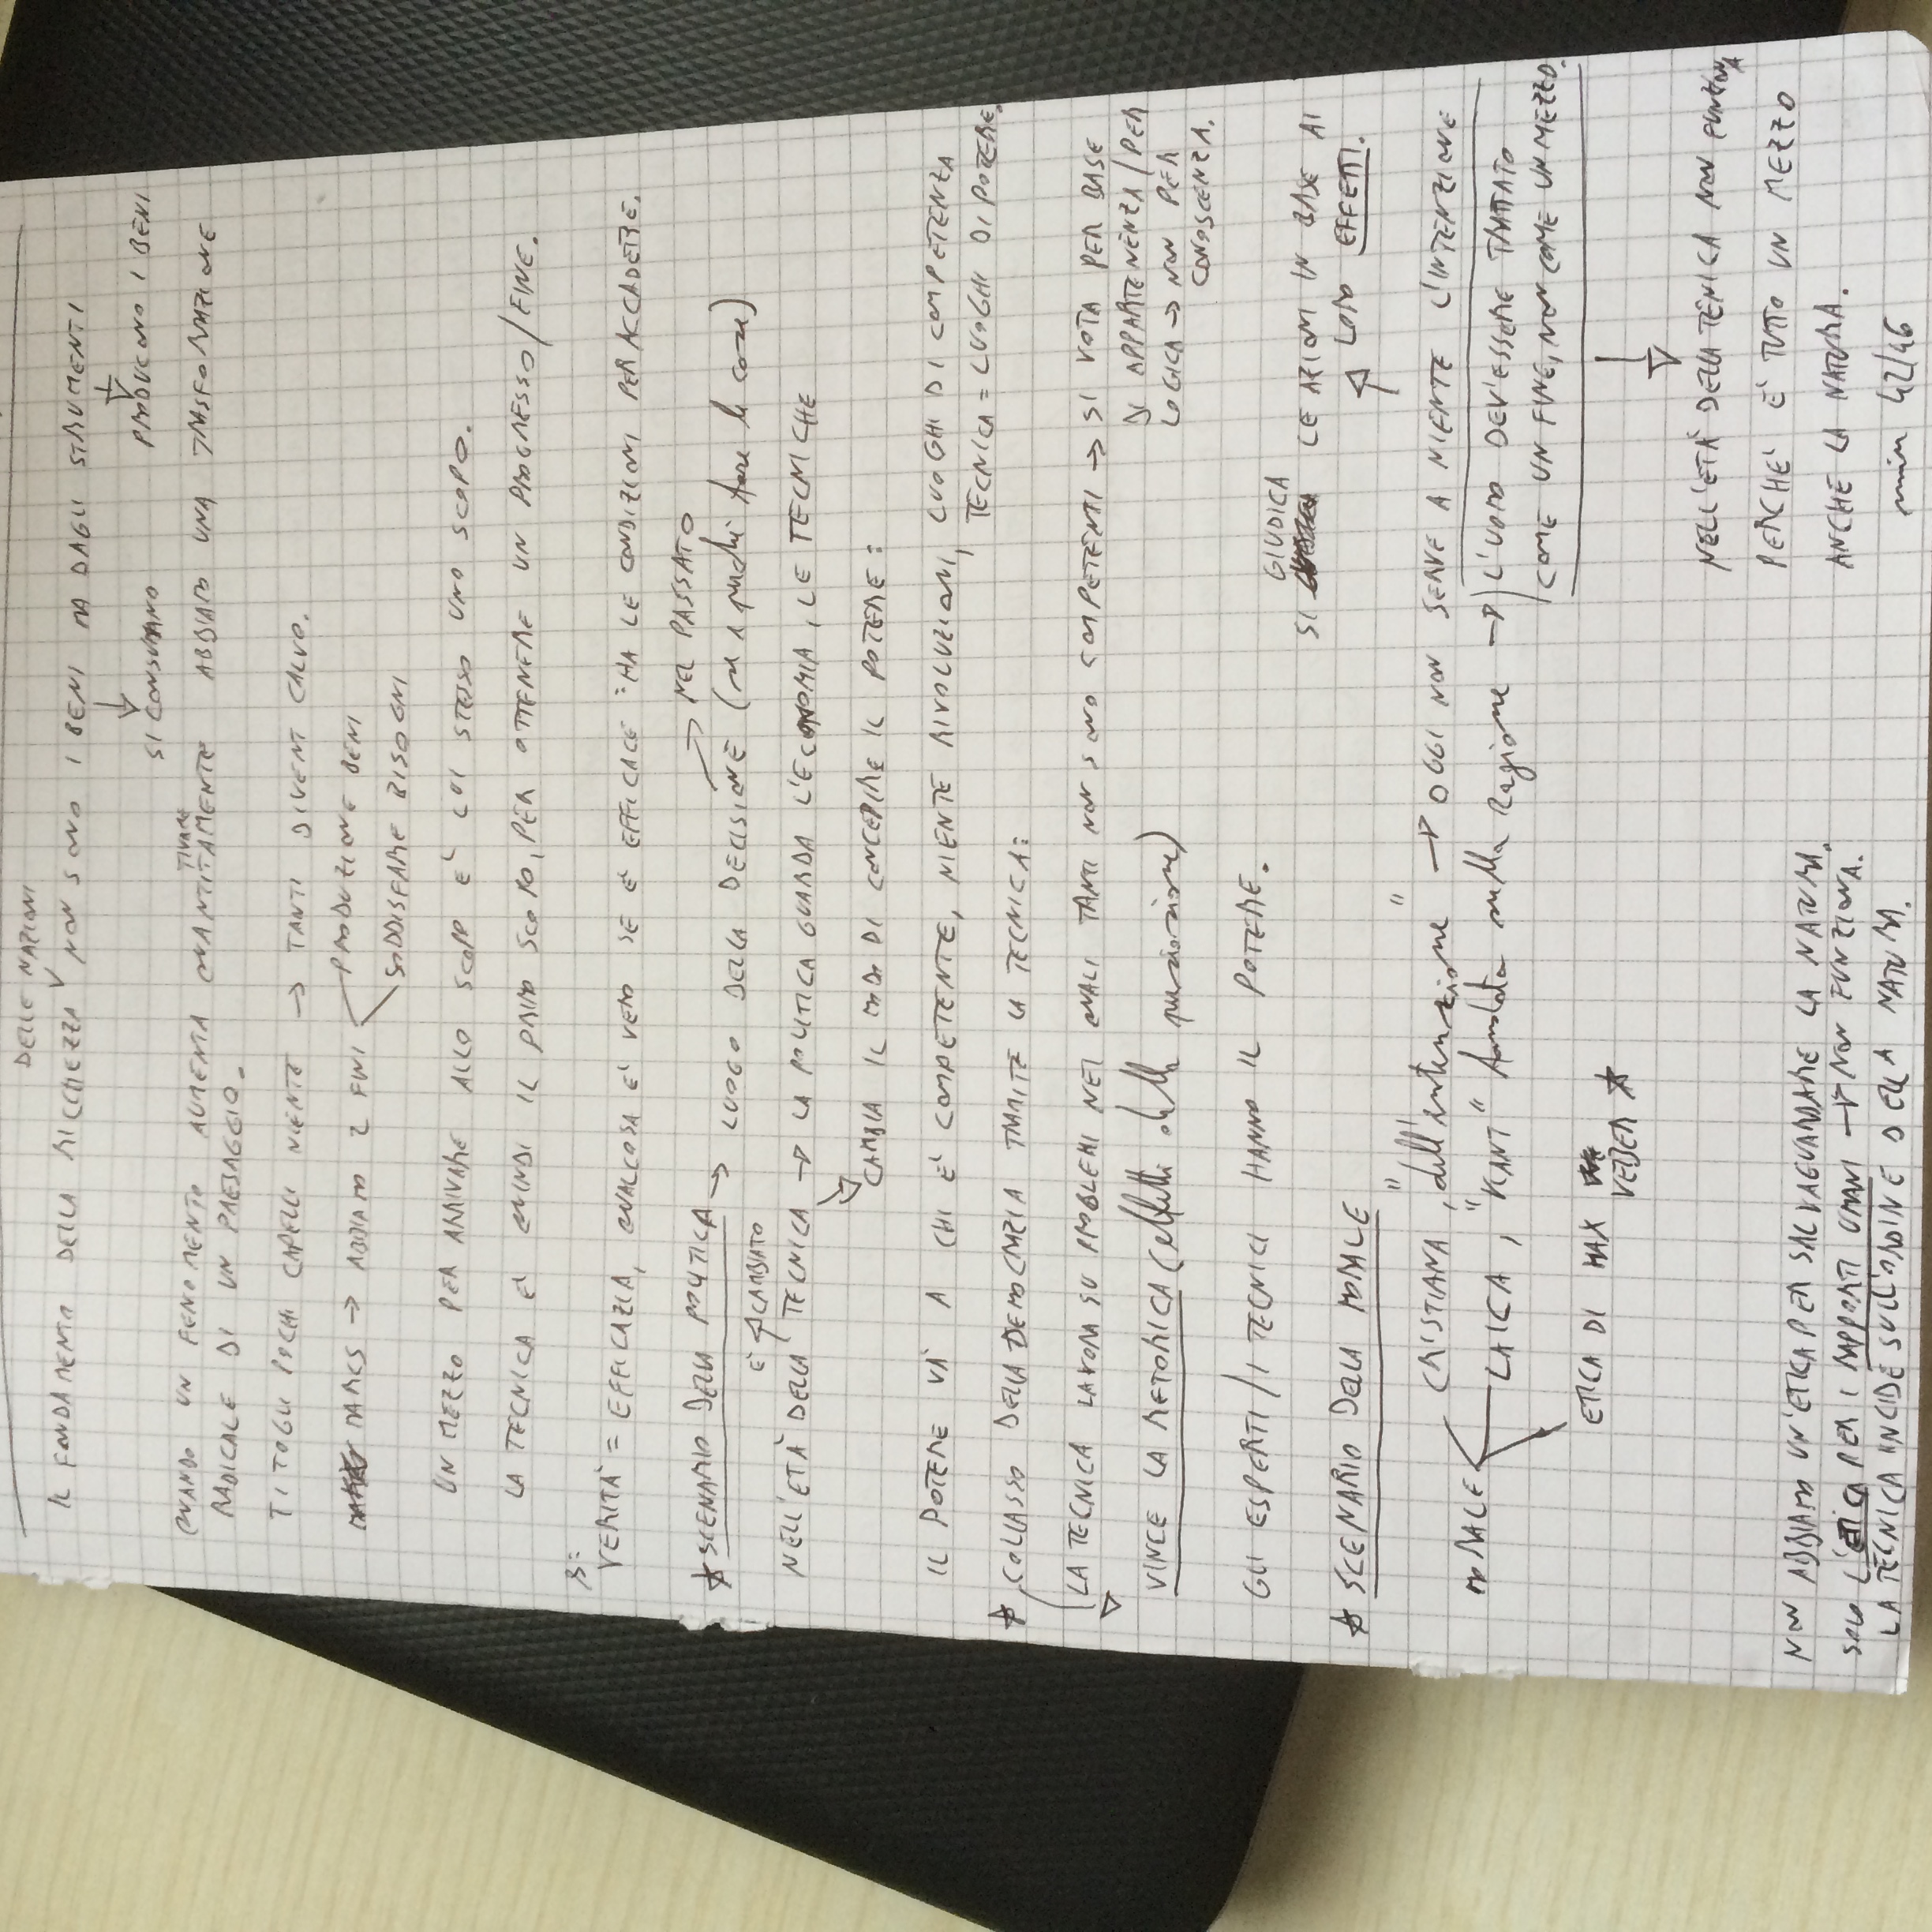 DELLE NAZIONI
IL FONDAMENTO DELLA RICCHEZZA NON SONO I BENI MA DAGLI STRUMENTI
SI CONSUMANO
PRODUCONO I BENI
TIVAME
QUANDO UN FENOMENTO AUMENTA QUANTITAMENTE ABBIAMO UNA TRASFORMAZIONE
RADICALE DI UN PAESAGGIO.
TI TOGLI POCHI CAPELLI NIENTE → TANTI DIVENT CALVO.
MARCS → ABBIAMO 2 FINI
PRODUZIONE BENI
SODDISFARE BISOGNI
UN MEZZO PER ARRIVARE ALLO SCOPO E' LUI STESSO UNO SCOPO.
LA TECNICA E' QUINDI IL PRIMO SCOPO, PER OTTENERE UN PROGRESSO/FINE.
VERITA' = EFFICACIA, QUALCOSA E' VERO SE E' EFFICACE "HA LE CONDIZIONI PER ACCADERE.
NEL PASSATO
SCENARIO DELLA POLITICA → LUOGO DELLA DECISIONE (su quali fare le cose)
E' CAMBIATO
NELL'ETA' DELLA TECNICA → LA POLITICA GUARDA L'ECONOMIA, LE TECNICHE
CAMBIA IL MODO DI CONCEPIRE IL POTERE:
IL POTERE VA A CHI E' COMPETENTE, NIENTE RIVOLUZIONI, LUOGHI DI COMPETENZA
TECNICA = LUOGHI DI POTERE.
COLLASSO DELLA DEMOCRAZIA TRAMITE LA TECNICA:
LA TECNICA LAVORA SU PROBLEMI NEI QUALI TANTI NON SONO COMPETENTI → SI VOTA PER BASE
DI APPARTENENZA / PER
LOGICA → NON PER
CONOSCENZA.
VINCE LA RETORICA (effetti della persuasione)
GLI ESPERTI / I TECNICI HANNO IL POTERE.
GIUDICA
SI LE AZIONI IN BASE AI
LORO EFFETTI.
SCENARIO DELLA MORALE
MORALE
CRISTIANA, "dell'intenzione" → OGGI NON SERVE A NIENTE L'INTENZIONE
LAICA, "KANT" fondata sulla Ragione → L'UOMO DEV'ESSERE TRATTATO
COME UN FINE, NON COME UN MEZZO.
ETICA DI MAX
VEBER
NELL'ETA' DELLA TENICA NON FUNZIONA
PERCHE' E' TUTTO UN MEZZO
ANCHE LA NATURA.
NON ABBIAMO UN'ETICA PER SALVAGUARDARE LA NATURA.
SOLO L'ETICA PER I RAPPORTI UMANI → NON FUNZIONA.
LA TECNICA INCIDE SULL'ORDINE DELLA NATURA.
min 42/46